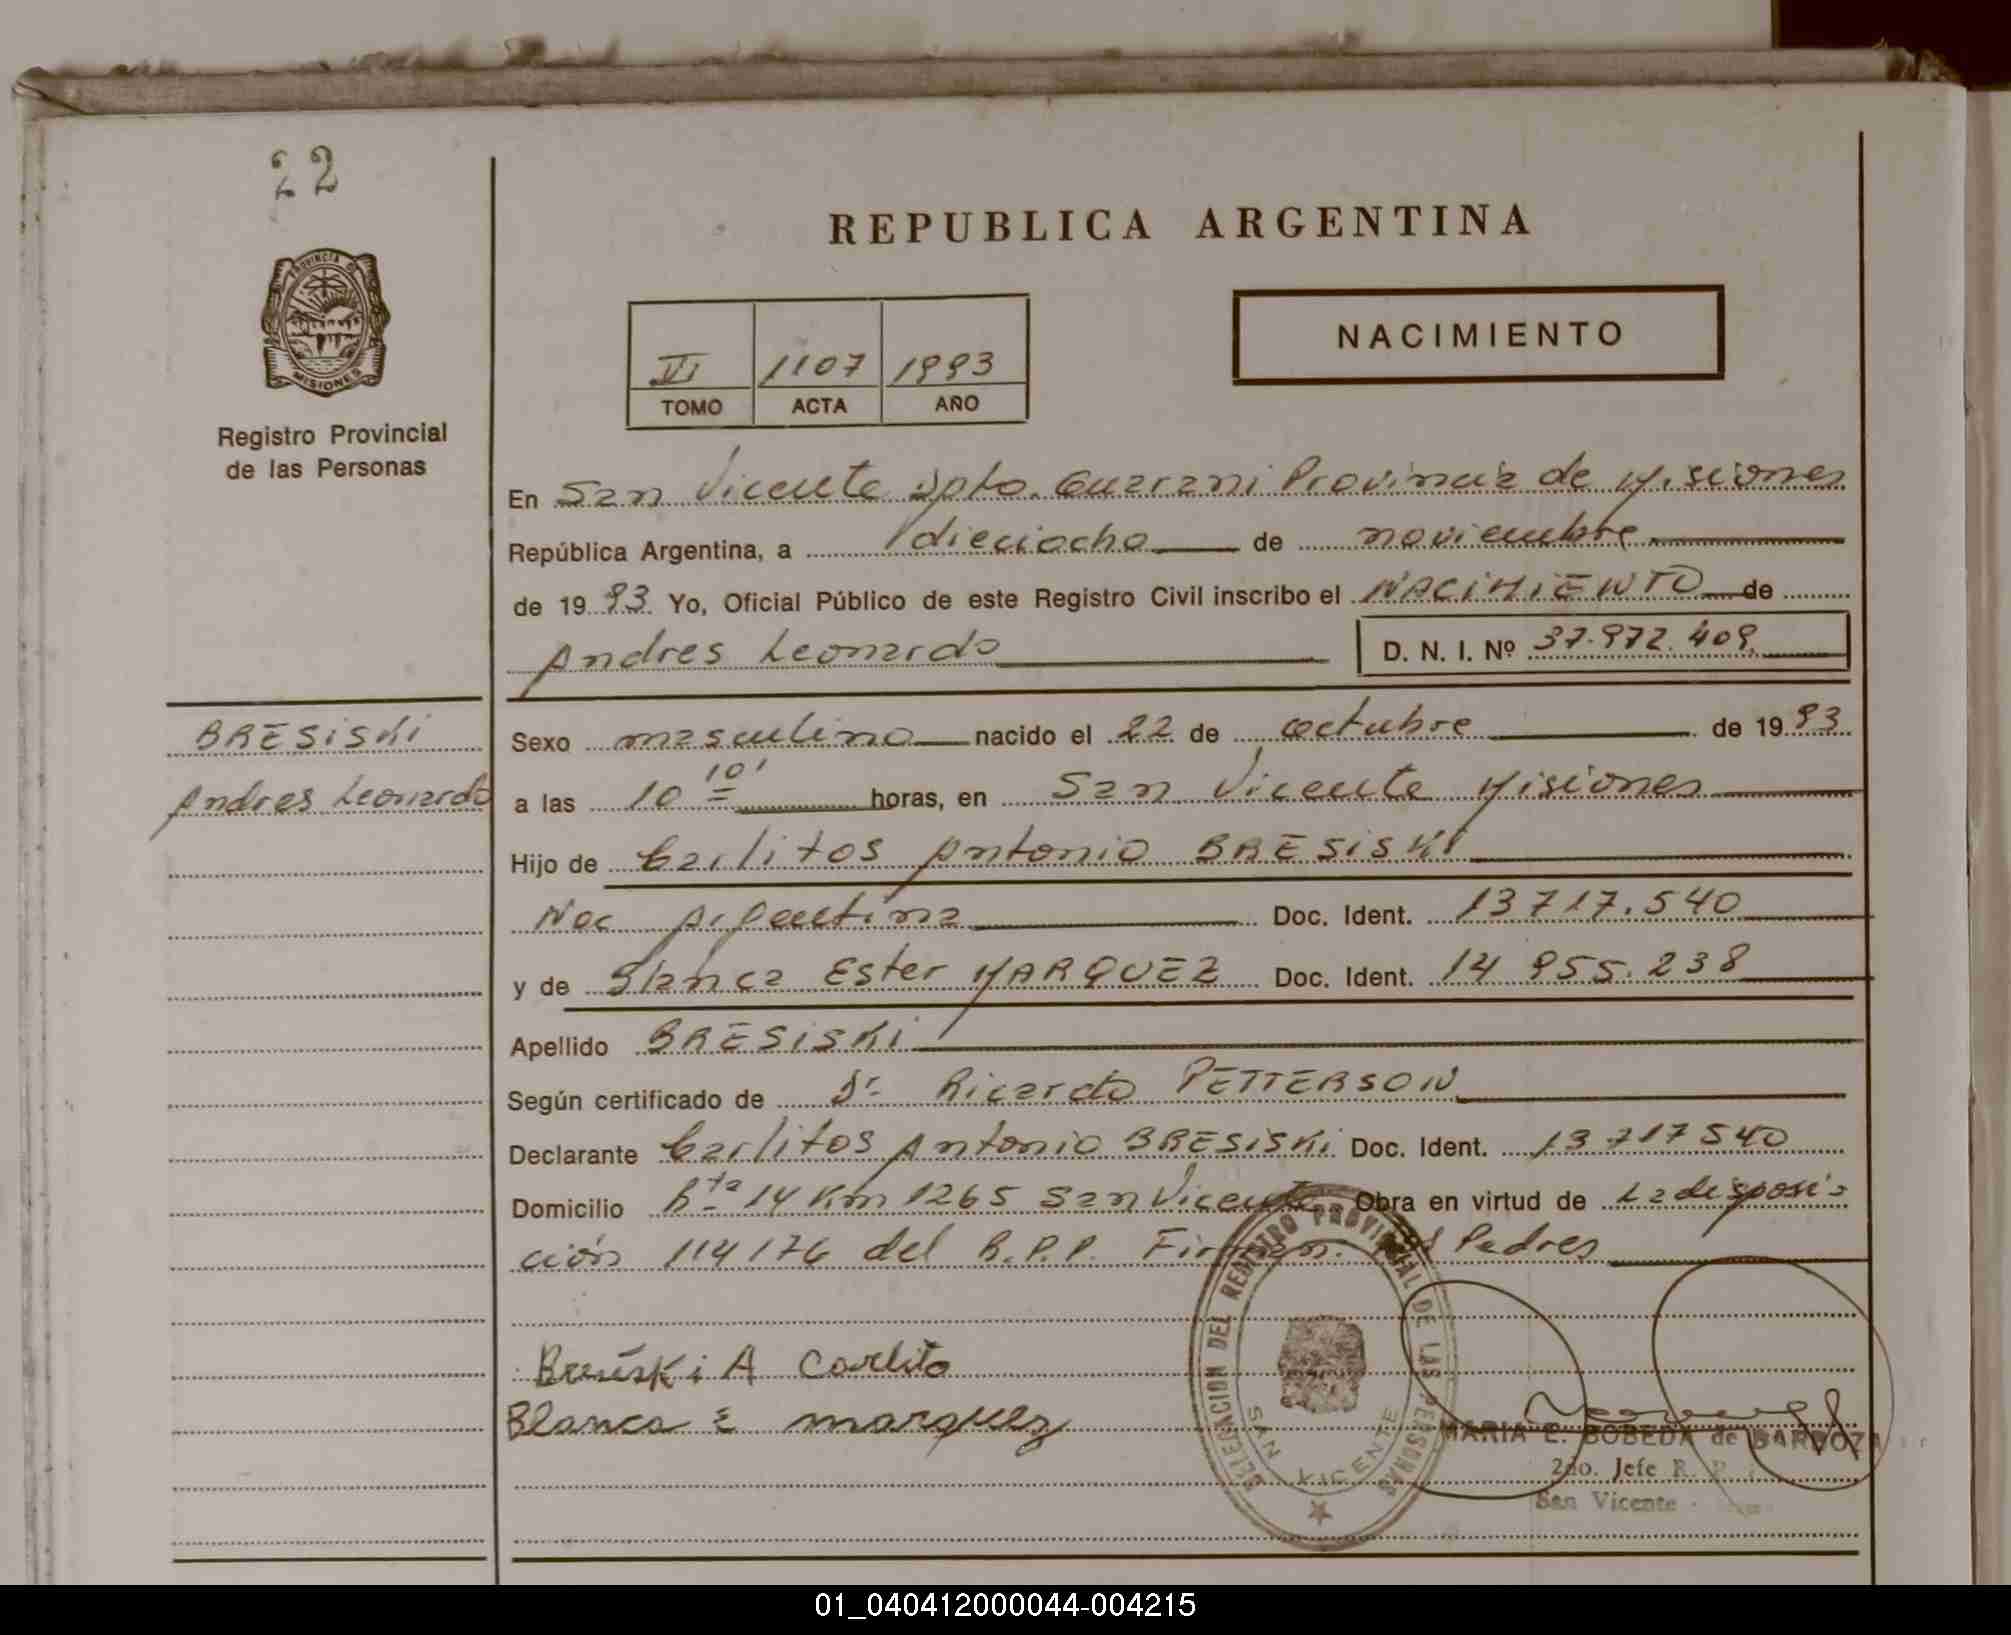 22
REPUBLICA ARGENTINA
PROVINCIA DE
MISIONES
Registro Provincial
de las Personas
VI 1107 1993
TOMO ACTA AÑO
NACIMIENTO
En San Vicente Dpto. Guarani Provincia de Misiones
República Argentina, a dieciocho de noviembre
de 1993 Yo, Oficial Público de este Registro Civil inscribo el NACIMIENTO de
Andres Leonardo D. N. I. Nº 37.972.409
BRESISKI
Andres Leonardo
Sexo masculino nacido el 22 de octubre de 1993
a las 10 10' horas, en San Vicente Misiones
Hijo de Carlitos Antonio BRESISKI
Nac Argentina Doc. Ident. 13717.540
y de Blanca Ester MARQUEZ Doc. Ident. 14 955.238
Apellido BRESISKI
Según certificado de Dr Ricardo PETTERSON
Declarante Carlitos Antonio BRESISKI Doc. Ident. 13717540
Domicilio Rta 14 Km 1265 San Vicente Obra en virtud de La disposi=
ción 114176 del R.P.P. Firman. Padres
Bresiski A Carlito
Blanca E marquez
DELEGACION DEL REGISTRO PROVINCIAL DE LAS PERSONAS
SAN VICENTE
MARIA E. BOBEDA de BARBOZA
2do. Jefe R. P.
San Vicente -
01_040412000044-004215